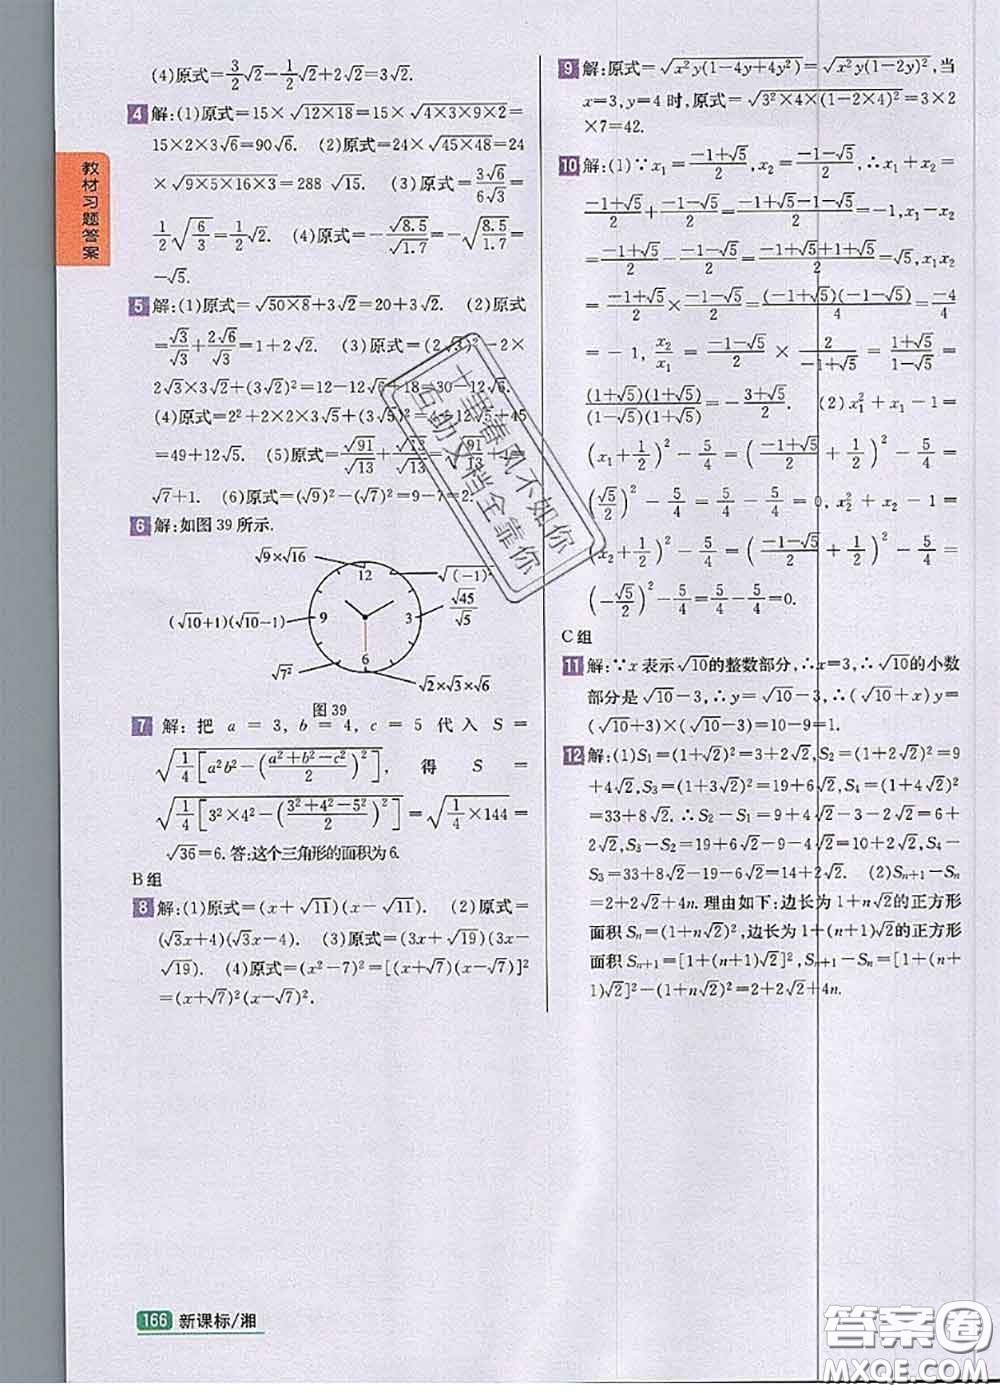 教材习题答案
(4)原式=3/2√2-1/2√2+2√2=3√2.
4 解:(1)原式=15×√(12×18)=15×√(4×3×9×2)=
15×2×3√6=90√6. (2)原式=24×√(45×48)=24
×√(9×5×16×3)=288 √15. (3)原式=3√6/6√3=
1/2√(6/3)=1/2√2. (4)原式=-√8.5/√1.7=-√(8.5/1.7)=
-√5.
5 解:(1)原式=√(50×8)+3√2=20+3√2. (2)原式
=√3/√3+2√6/√3=1+2√2. (3)原式=(2√3)²-2×
2√3×3√2+(3√2)²=12-12√6+18=30-12√6.
(4)原式=2²+2×2×3√5+(3√5)²=4+12√5+45
=49+12√5. (5)原式=√91/√13+√13/√13=√(91/13)+1=
√7+1. (6)原式=(√9)²-(√7)²=9-7=2.
6 解:如图 39 所示.
√9×√16
√(-1)²
√45/√5
(√10+1)(√10-1)
12
9
3
6
√7²
√2×√3×√6
图 39
7 解: 把 a = 3, b = 4, c = 5 代入 S =
√(1/4[a²b²-((a²+b²-c²)/2)²]), 得 S =
√(1/4[3²×4²-((3²+4²-5²)/2)²])=√(1/4×144)=
√36=6. 答:这个三角形的面积为6.
B组
8 解:(1)原式=(x+√11)(x-√11). (2)原式=
(√3x+4)(√3x-4). (3)原式=(3x+√19)(3x-
√19). (4)原式=(x²-7)²=[(x+√7)(x-√7)]²
=(x+√7)²(x-√7)².
9 解:原式=√(x²y(1-4y+4y²))=√(x²y(1-2y)²),当
x=3,y=4 时,原式=√(3²×4×(1-2×4)²)=3×2
×7=42.
10 解:(1)∵x₁=(-1+√5)/2,x₂=(-1-√5)/2,∴x₁+x₂=
(-1+√5)/2+(-1-√5)/2=(-1+√5-1-√5)/2=-1,x₁-x₂
=(-1+√5)/2-(-1-√5)/2=(-1+√5+1+√5)/2=√5,x₁x₂
=(-1+√5)/2×(-1-√5)/2=(-1+√5)(-1-√5)/4=-4/4
=-1, x₂/x₁=(-1-√5)/2×2/(-1+√5)=(1+√5)/(1-√5)=
(1+√5)(1+√5)/(1-√5)(1+√5)=(-3+√5)/2. (2)x₁²+x₁-1=
(x₁+1/2)²-5/4=((-1+√5)/2+1/2)²-5/4=
(√5/2)²-5/4=5/4-5/4=0,x₂²+x₂-1=
(x₂+1/2)²-5/4=((-1-√5)/2+1/2)²-5/4=
(-√5/2)²-5/4=5/4-5/4=0.
C组
11 解:∵x 表示√10的整数部分,∴x=3,∴√10的小数
部分是√10-3,∴y=√10-3,∴(√10+x)y=
(√10+3)×(√10-3)=10-9=1.
12 解:(1)S₁=(1+√2)²=3+2√2,S₂=(1+2√2)²=9
+4√2,S₃=(1+3√2)²=19+6√2,S₄=(1+4√2)²
=33+8√2.∴S₂-S₁=9+4√2-3-2√2=6+
2√2,S₃-S₂=19+6√2-9-4√2=10+2√2,S₄-
S₃=33+8√2-19-6√2=14+2√2. (2)Sₙ₊₁-Sₙ
=2+2√2+4n.理由如下:边长为 1+n√2的正方形
面积 Sₙ=(1+n√2)²,边长为 1+(n+1)√2的正方形
面积 Sₙ₊₁=[1+(n+1)√2]²,∴Sₙ₊₁-Sₙ=[1+(n+
1)√2]²-(1+n√2)²=2+2√2+4n.
十里春风不如你
互助文档全靠你
166 新课标/湘
答案圈
MXQE.COM